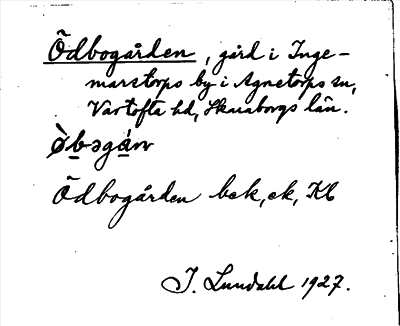 Ödbogården, gård i Inge-
marstorps by i Agnetorps sn,
Vartofta hd, Skaraborgs län.
Ödbogården bek, ek, Kb
I. Lundahl 1927.